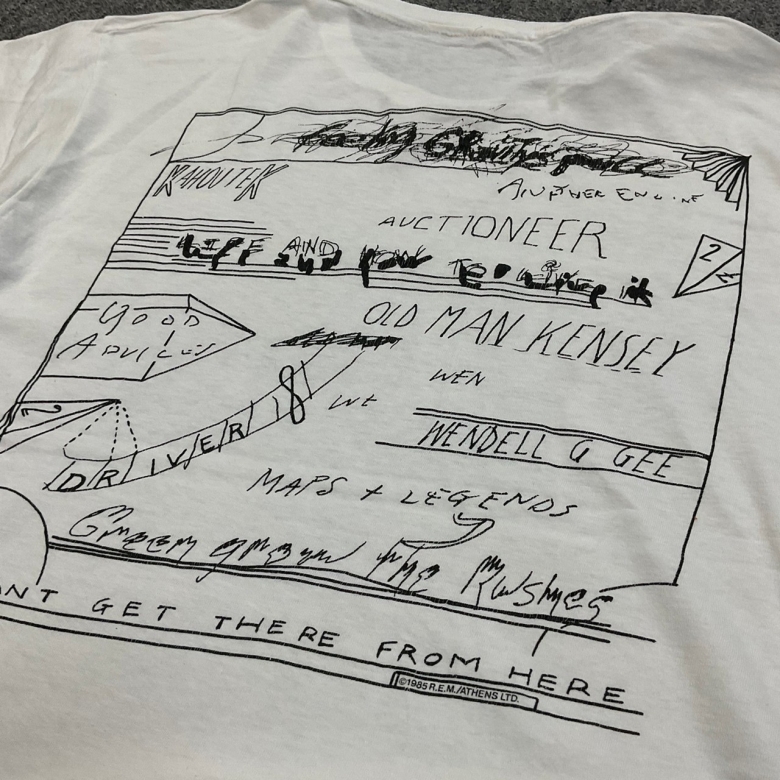 Feeling Gravitys Pull
KAHOUTEK
ANOTHER ENGINE
AUCTIONEER
LIFE AND HOW TO LIVE IT
GOOD
ADVICES
OLD MAN KENSEY
WEN
WE
DRIVER 8
WENDELL G GEE
MAPS + LEGENDS
Green grow the Rushes
ANT GET THERE FROM HERE
©1985 R.E.M./ATHENS LTD.